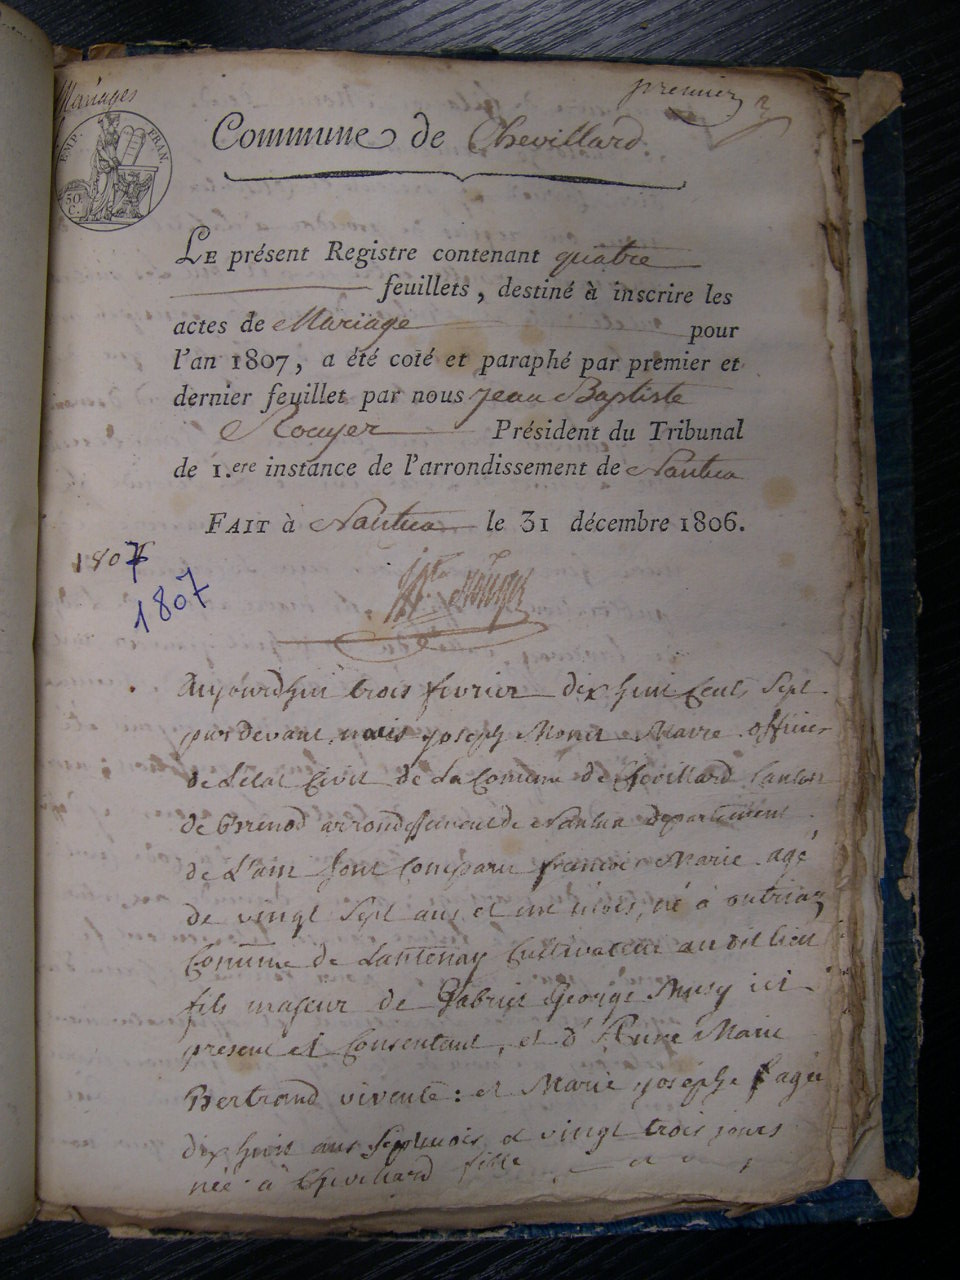 Mariages
premier
EMP. FRAN.
50. C.
Commune de Chevillard
LE présent Registre contenant quatre
feuillets, destiné à inscrire les
actes de Mariage pour
l'an 1807, a été coté et paraphé par premier et
dernier feuillet par nous Jean Baptiste
Rouyer Président du Tribunal
de 1.ere instance de l'arrondissement de Nantua
FAIT à Nantua le 31 décembre 1806.
1807
1807
Aujourdhui trois fevrier dix huit cents Sept
par devant nous joseph Monet Maire officier
de Letat Civil de La Comune de Chevillard Canton
de Brenod arrondissement de Nantua departement
de L'ain sont Comparu francois Marie agé
de vingt Sept ans et un mois, né à outriaz
Comune de Lantenay Cultivateur au dit lieu
fils majeur de Gabriel George Musy ici
present et Consentant, et d' Marie
Bertrand vivente : et Marie josephe agée
dix huit ans Sept mois et vingt trois jours
née à Chevillard fille